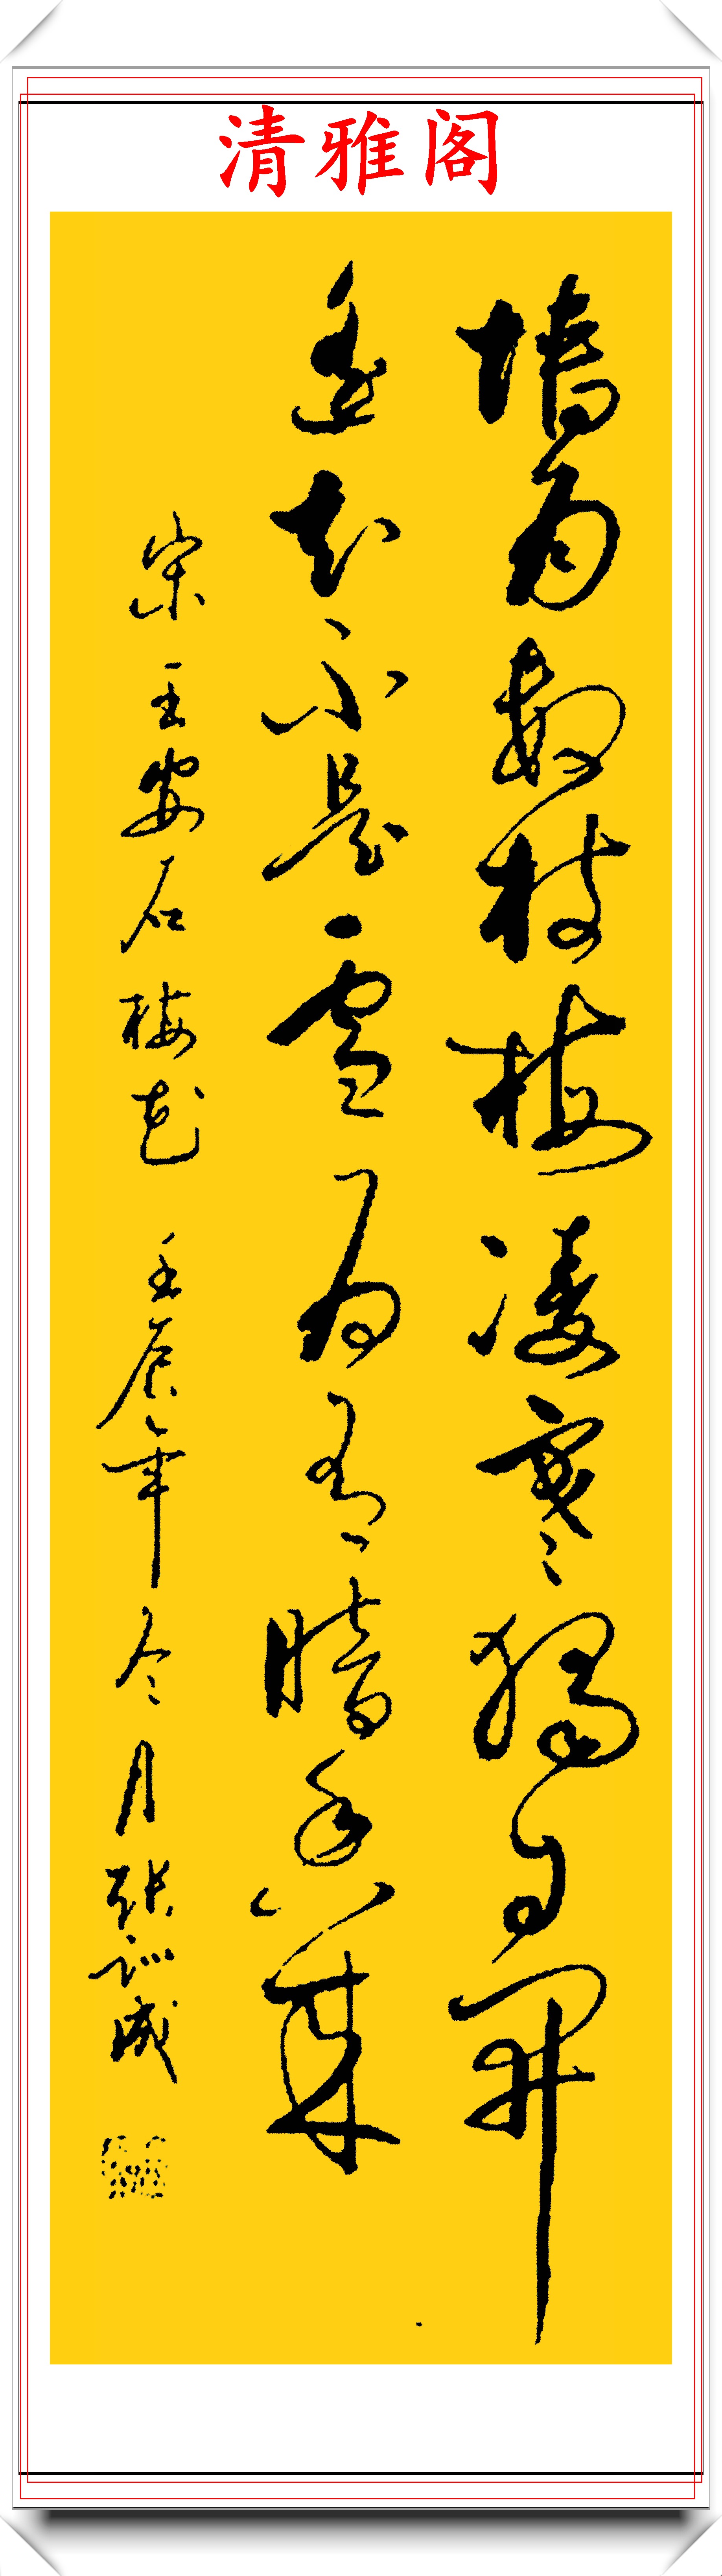 清雅阁
墙角数枝梅凌寒独自开
遥知不是雪为有暗香来
宋王安石梅花 壬辰年冬月张训